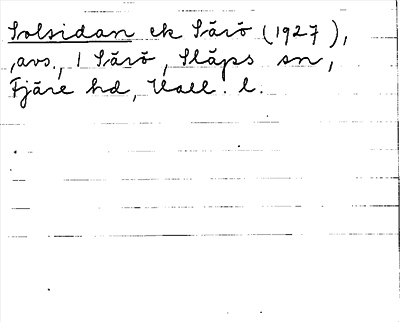 Solsidan ek Särö (1927),
,avs., 1 Särö, Släps sn,
Fjäre hd, Hall. l.